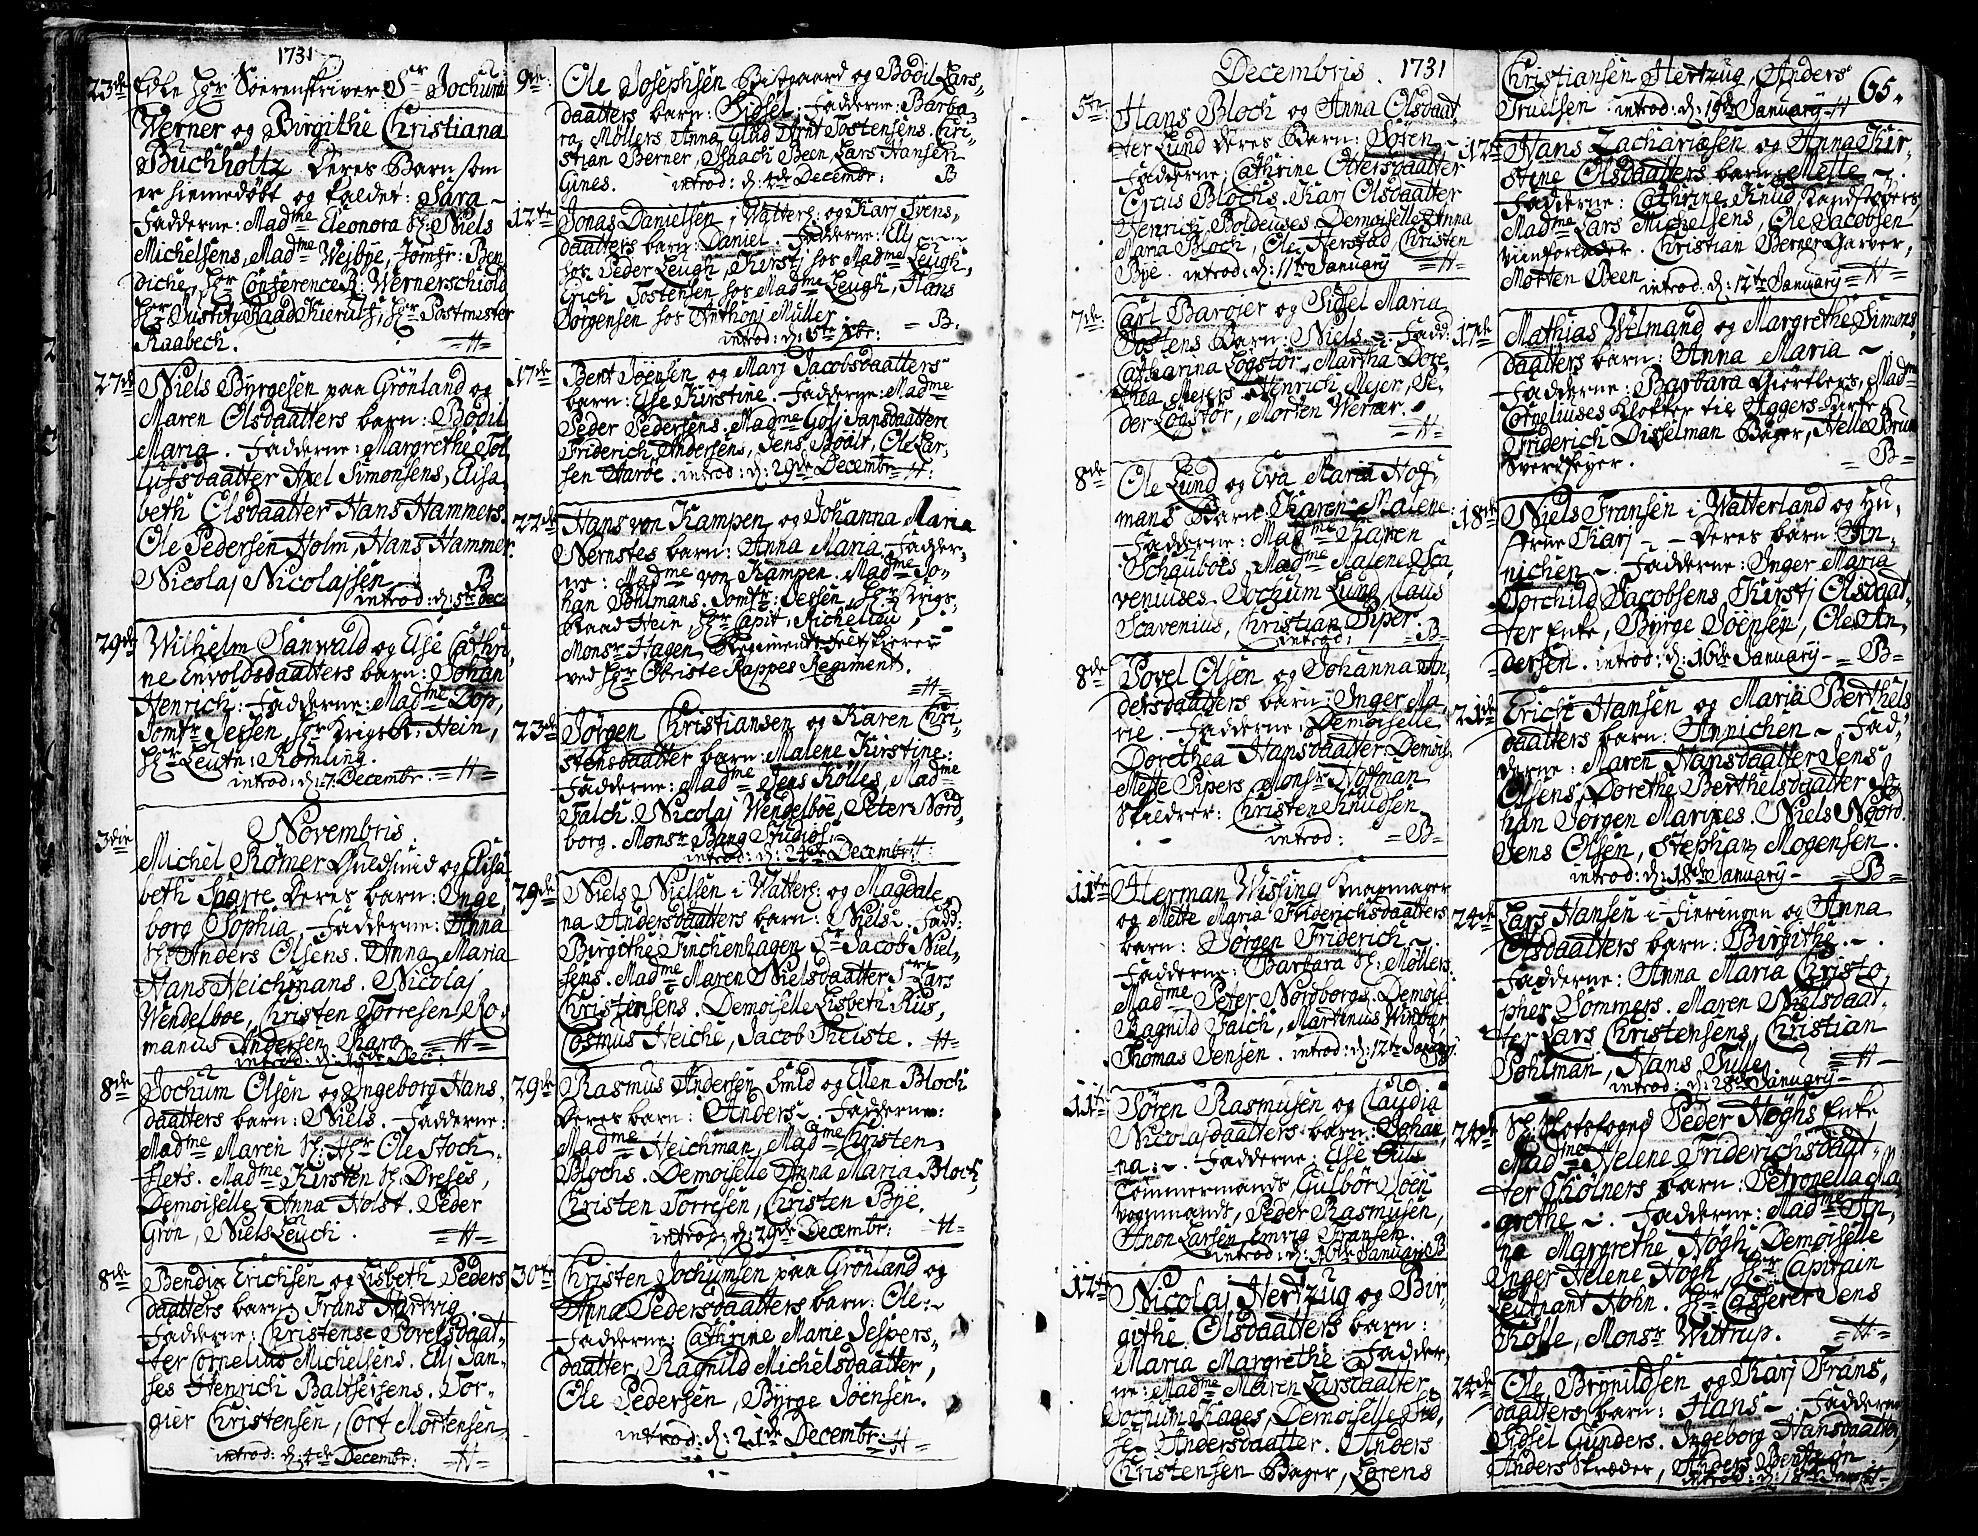 1731
23de Edle Hr Sørenskriver Sr Jochum
Werner og Birgithe Christiana
Buchholtz deres Barn som
er hiemedøbt og kaldet: Sara -
Fadderne: Madme Eleonora Sl: Niels
Michelsens, Madme Weibye, Jomfr: Ben
diche, Hr Conference R: Wernerschiold
Hr Justitz Raad Hierulf, Hr Postmester
Raabech. =H=
27de Niels Byrgesen paa Grønland og
Maren Olsdaatters barn: Bodil
Maria. Fadderne: Margrethe Tol
lufsdaatter Axel Simonsens, Elisa
beth Elsdaatter Hans Hammers.
Ole Pedersen Holm, Hans Hammer.
Nicolaj Nicolajsen B
introd: d: 5te Dec
29de Wilhelm Sanwald og Else Cathri,
ne Envoldsdaatters barn: Johan
Henrich: Fadderne: Madme Dop,
Jomfr Jessen, Hr Krigs R: Hein,
Hr Leutn: Romling.
introd: d: 7 Decembr: =H=
Novembris.
3die Michel Romer Guldsmid og Elisa
beth Sparre deres barn: Inge
borg Sophia. Fadderne: Anna
Sl: Anders Olsens. Anna Maria
Hans Heichmans. Nicolaj
Wendelboe, Christen Torresen Ro,
manus Andersen Karg =H=
introd: d: Dec:
8de Jochum Olsen og Ingeborg Hans
daatters barn: Niels. Fadderne:
Madme Maren Sl: Hr Ole Stoch,
flets. Madme Kirsten Sl: Dreses,
Demoiselle Anna Holst. Peder
Grøn, Niels Leuch. =H=
8de Bendix Erichsen og Lisbeth Peders
daatters barn: Frans Hartvig
Fadderne: Christense Povelsdaat,
ter Cornelius Michelsens. Elli Jan,
ses Henrich Baltsersens. Tor,
gier Christensen, Cort Mortensen
introd: d: 4de Decembr: =H=
9de Ole Josephsen Bestgaard og Bodil Lars,
daatters barn: Sidsel. Fadderne: Barba
ra Mollers Anna Glad Arnt Tostensens. Chri
stian Berner, Isaach Been, Lars Hansen
Gines. introd: d: 4de Decembr: B
12te Jonas Danielsen i Watterl: og Kari Svens,
daatters barn: Daniel. Fadderne: Elli
hos Peder Leugh, Kirsti hos Madme Leugh,
Erich Tostensen hos Madme Leugh, Hans
Jorgensen hos Anthonj Müller
introd: d: 5te Xbr: =B:
17de Bent Jøensen og Marj Jacobsdaatters
barn: Else Kirstine. Fadderne: Madme
Peder Pedersens, Madme Golj Jansdaatter
Friderich Andersens, Jens Boalt, Ole Lar,
sen Aarøe. introd: d: 29de Decembr =H:
22de Hans von Kampen og Johanna Maria
Nernstes barn: Anna Maria. Fadder,
ne: Madme von Kampen. Madme Jo,
han Pohlmans. Jomfr: Jessen, Hr Krigs,
Raad Hein, Hr Capit: Richelieu,
Monsr Hagen, Regiments Feltskierer
ved Hr Obriste Rappes Regiment.
=H=
23de Jørgen Christiansen og Karen Chri,
stensdaatter barn: Malene Kirstine:
Fadderne: Madme Jens Kølles, Madme
Falch. Nicolaj Wendelboe, Peter Nord,
borg. Monsr Bang Studios:
introd: d: 24de Decembr H:
29de Niels Nielsen i Watterl: og Magdale,
na Andersdaatters barn: Niels. Fadd:
Birgithe Finchenhagen Sr Jacob Niel,
sens. Madme Maren Nielsdaatter Sr Lars
Christensens. Demoiselle Lisbeth Rus,
Cosmus Heiche, Jacob Theiste. H=
29de Rasmus Andersen Smid og Ellen Bloch
deres barn: Anders. Fadderne:
Madme Heichman, Madme Christen
Blochs. Demoiselle Anna Maria Bloch,
Christen Torresen, Christen Bye.
introd: d: 29de Decembr: =H=
30te Christen Jochumsen paa Grønland og
Anna Pedersdaatters barn: Ole:
Fadderne: Cathrine Marie Jespers,
daatter, Ragnild Michelsdaatter,
Ole Pedersen, Byrge Jøensen.
introd: d: 21de Decembr: =H=
Decembris. 1731
5te Hans Bloch og Anna Olsdaat,
ter Lund deres Barn: Søren
Fadderne: Cathrine Ottersdaatter
Crcus Blochs. Karj Olsdaatter
Henrich Boldeuses. Demoiselle Anna
Maria Bloch, Ole Herstad Christen
Bye. introd: d: 11te January =H=
7de Carl Barøier og Sidsel Maria
Tostens Barn: Niels. Fadd:
Catharina Løgstør, Martha Dore
thea Meiers Henrich Mejer, Pe,
der Løgstør, Morten Werier.
=H=
8de Ole Lund og Eva Maria Hof,
mans Barn: Karen Malene:
Fadderne: Madme Karen
Schaubois, Madme Malene Sca,
veniuses. Jochum Lund, Claus
Scavenius, Christian Piper.
introd: =B=
8de Povel Olsen og Johanna An,
dersdaatters barn: Inger Ma,
rie. Fadderne: Demoiselle
Dorothea Hansdaatter. Demois:
Mette Pipers Monsr Hofman
Skildrer: Christen Knudsen
introd: =B=
11te Herman Wising Knapmager
og Mette Maria Friderichsdaatters
barn: Jørgen Friderich.
Fadderne: Barbara Sl: Mollers.
Madme Peter Nordborgs. Demois:
Ragnild Falch, Martinus Winter,
Thomas Jensen. introd: d: 12te January.
B
11te Søren Rasmusen og Claudia
Nicolajdaatters barn: Johan,
na: Fadderne: Else Tuls
Tommermands, Gulbør Joen
Vognmands, Peder Rasmusen,
Anon Larsen, Emrig Fransen.
introd: d: 16de January B
12te Nicolaj Hertzug og Bir,
githe Olsdaatters barn:
Maria Margrethe: Fadder,
ne: Madme Maren Larsdaatter
Jochum Kages, Demoiselle Sid,
sel Andersdaatter. Anders
Christensen Bager, Lorens
Christiansen Hertzug, Anders 65.
Truelsen introd: d: 19de January H
12te Hans Zachariæsen og Anna Kir,
stine Olsdaatters barn: Mette.
Fadderne: Cathrine Knud Kandstøbers
Madme Lars Michelsens, Ole Jacobsen
viinforlader. Christian Berner Garver,
Morten Been introd: d: 12te January =H=
17de Mathias Welmand og Margrethe Simons,
daatters barn: Anna Maria
Fadderne: Barbara Giørtlers, Madme
Corneliuses Klokker til Aggers Kirke
Friderich Disselman Bager, Nelle Brun
Sverdfeyer. =B=
18de Niels Fransen i Watterland og hu,
strue Karj - - deres barn: An,
nichen. Fadderne: Inger Maria
Torchild Jacobsens Kirstj Olsdaat,
ter Enke, Byrge Jøensen, Ole An,
dersen. introd: d: 16de January =B=
21de Erich Hansen og Maria Berthels
daatters barn: Annichen. Fad,
derne: Maren Hansdaatter Jens
Olsens, Dorethe Berthelsdaatter Jo,
han Jørgen Maripes. Niels Noord.
Jens Olsen, Stephan Mogensen.
introd: d: 18de January =B=
24de Lars Hansen i Fieringen og Anna
Olsdaatters barn: Birgithe.
Fadderne: Anna Maria Christo,
pher Sommers. Maren Nielsdaat,
ter Lars Christensens, Christian
Pohlman, Hans Tulle, =H=
introd: d: 28de January
24de Sl: Slotsfoged Peder Høghs Enke
Madme Helene Friderichsdaat,
ter Thølners barn: Petronella Ma
grethe. Fadderne: Madme An,
na Margrethe Høgh, Demoiselle
Inger Helene Høgh, Hr Capitain
Leutnant Hohn. Hr Casserer Jens
Kølle, Monsr Wittrup. =H=
24de Ole Brynildsen og Karj Frans,
daatters barn: Hans. Fadderne
Sidsel Gunders. Ingeborg Hansdaatter,
Anders Skræder, Anders Bentzøn
introd: d: January